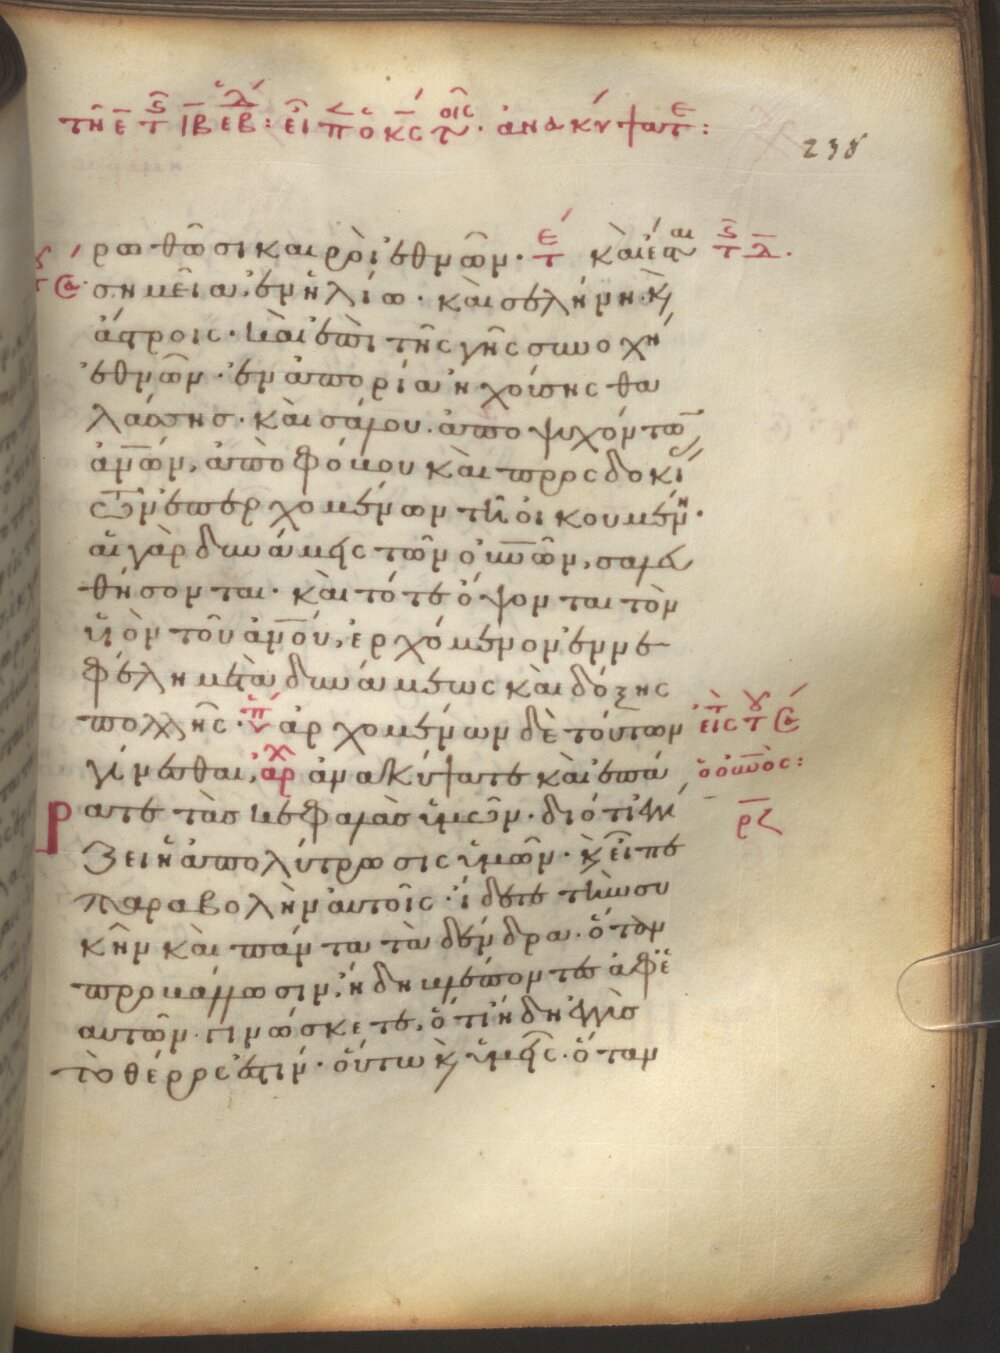 τῆ ε̄ τ ς̑ ιβ̄ εβ δ: εἶπ ὁ κς̄ τοῖς· ἀνακύψατε:
238
ρωθῶσι καιρὸι ἐθνῶν· τε καὶ ἔσται
σημεῖα ἐν ἡλίω· καὶ σελήνη· κ̀
ἄστροις· καὶ ἐπὶ τῆς γῆς συνοχὴ
ἐθνῶν· ἐν ἀπορία ἠχούσης θα
λάσσης· καὶ σάλου. ἀποψυχόντω
ἀν̅ω̅ν, ἀπὸ φόβου καὶ προσδοκί
ας τῶν ἐπερχομένων τῆ οἰκουμένη·
αἱ γὰρ δυνάμεις τῶν οὐν̅ῶν, σαλευ
θήσονται· καὶ τότε ὄψονται τὸν
υἱὸν τοῦ ἀν̅ο̅υ, ἐρχόμενον ἐν νε
φέλη μετὰ δυνάμεως καὶ δόξης
πολλῆς· ἀρχομένων δὲ τούτων
γίνεσθαι, ἀρχ ἀνακύψατε καὶ ἐπά
ρατε τὰς κεφαλὰς ὑμῶν· διότι ἐγγί
ζει ἡ ἀπολύτρωσις ὑμῶν· κ̀ εἶπε
παραβολὴν αὐτοῖς· ἴδετε τὴν συ
κῆν καὶ πάντα τὰ δένδρα· ὅταν
προβάλλωσιν, ἤδη βλέποντες ἀφ ἑ
αυτῶν γινώσκετε, ὅτι ἤδη ἐγγὺς
τὸ θέρος ἐστίν· οὕτω κ̀ ὑμεῖς· ὅταν